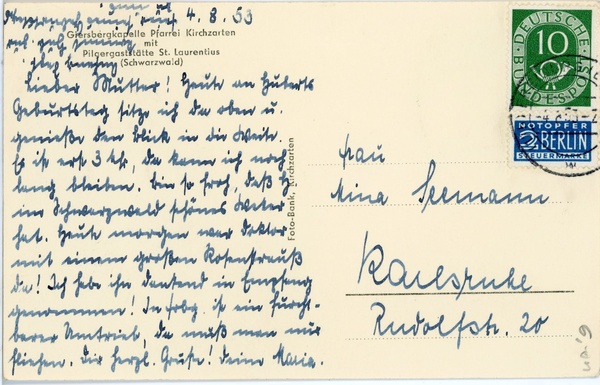 4.8.53
Giersbergkapelle Pfarrei Kirchzarten
mit
Pilgergaststätte St. Laurentius
(Schwarzwald)
Lieber Mutter! Heute an Huberts
Geburtstag sitze ich da oben u.
genieße den Blick in die Weite.
Es ist erst 3 Uhr, da kann ich noch
lang bleiben. Bin so froh, daß Ihr
im Schwarzwald schönes Wetter
hat. Heute morgen war Doktor
mit einem großen Rosenstrauß
da! Ich habe ihn dankend in Empfang
genommen! In ist ein furcht-
barer Umtrieb, da muß man nur
fliehen. Dir herzl. Grüße! Deine Maria.
Foto-Bank, Kirchzarten
Frau
Mina Seemann
Karlsruhe
Rudolfstr. 20
DEUTSCHE
BUNDESPOST
10
NOTOPFER
2 BERLIN
STEUERMARKE